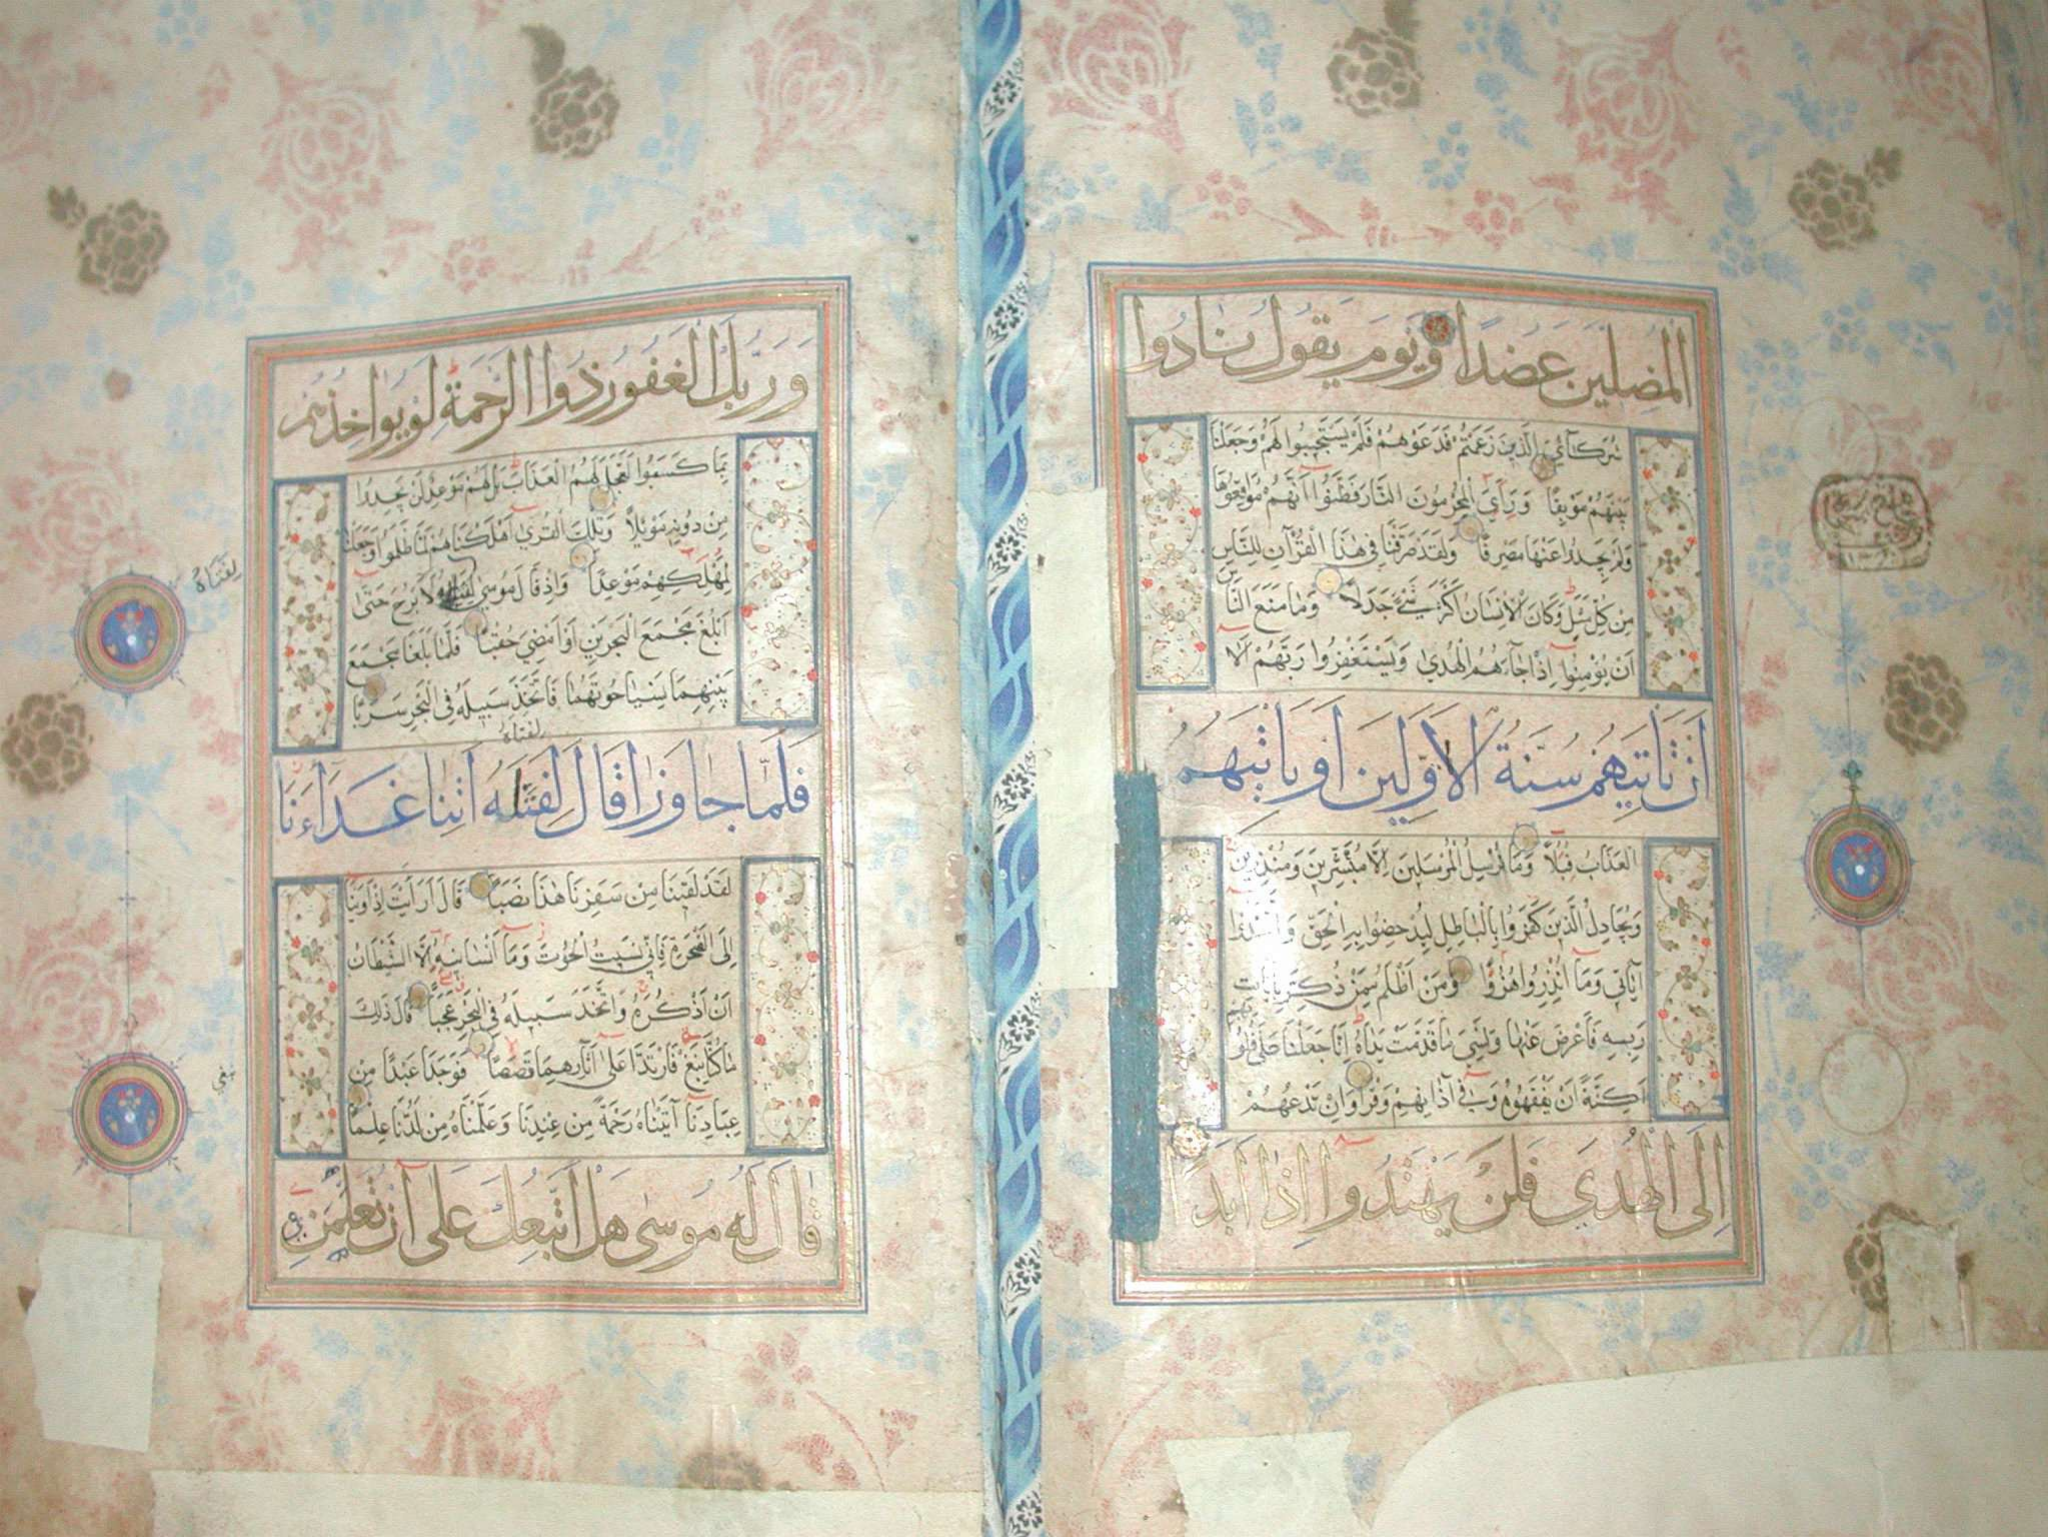 المضلين عضدا ويوم يقول نادوا
شركآئي الذين زعمتم فدعوهم فلم يستجيبوا لهم وجعلنا
بينهم موبقا ورأي المجرمون النار فظنوا انهم مواقعوها
ولم يجدوا عنها مصرفا ولقد صرفنا في هذا القرآن للناس
من كل مثل وكان الانسان اكثر شئ جدلا وما منع الناس
ان يؤمنوا اذ جاءهم الهدى ويستغفروا ربهم الا
ان تاتيهم سنة الاولين او ياتيهم
العذاب قبلا وما نرسل المرسلين الا مبشرين ومنذرين
ويجادل الذين كفروا بالباطل ليدحضوا به الحق واتخذوا
آياتي وما انذروا هزوا ومن اظلم ممن ذكر بايات
ربه فاعرض عنها ونسي ما قدمت يداه انا جعلنا على قلوبهم
اكنة ان يفقهوه وفي آذانهم وقرا وان تدعهم
الى الهدي فلن يهتدوا اذا ابدا
وربك الغفور ذوا الرحمة لو يواخذهم
بما كسبوا لعجل لهم العذاب بل لهم موعد لن يجدوا
من دونه موئلا وتلك القرى اهلكناهم لما ظلموا وجعلنا
لمهلكهم موعدا واذ قال موسى لفتاه لا ابرح حتى
لفتاه
ابلغ مجمع البحرين او امضي حقبا فلما بلغا مجمع
بينهما نسيا حوتهما فاتخذ سبيله في البحر سربا
لفتاه
فلما جاوزا قال لفته اتنا غداءنا
لقد لقينا من سفرنا هذا نصبا قال ارايت اذ اوينا
الى الصخرة فاني نسيت الحوت وما انسانيه الا الشيطان
ان اذكره واتخذ سبيله في البحر عجبا قال ذلك
ما كنا نبغ فارتدا على آثارهما قصصا فوجدا عبدا من
عبادنا آتيناه رحمة من عندنا وعلمناه من لدنا علما
قال له موسى هل اتبعك على ان تعلمن